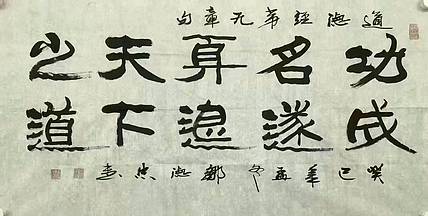 道德經第九章句
功成
名遂
身退
天下
之道
癸巳年孟冬鄒德忠書